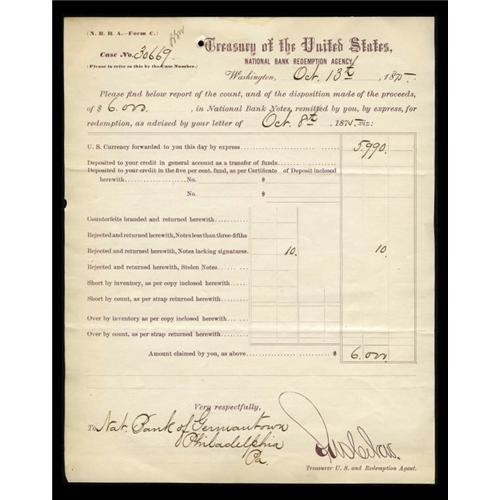 (N. B. R. A.—Form C.)
Case No. 30669
(Please to refer to this by the Case Number.)
Treasury of the United States,
NATIONAL BANK REDEMPTION AGENCY
Washington, Oct. 13th, 1875.
Please find below report of the count, and of the disposition made of the proceeds,
of $ 6.000, in National Bank Notes, remitted by you, by express, for
redemption, as advised by your letter of Oct. 8th 1875, viz:
U. S. Currency forwarded to you this day by express 5.990.
Deposited to your credit in general account as a transfer of funds.
Deposited to your credit in the five per cent. fund, as per Certificate of Deposit inclosed
herewith No. $
No. $
Counterfeits branded and returned herewith
Rejected and returned herewith, Notes less than three-fifths
Rejected and returned herewith, Notes lacking signatures 10. 10.
Rejected and returned herewith, Stolen Notes
Short by inventory, as per copy inclosed herewith
Short by count, as per strap returned herewith
Over by inventory as per copy inclosed herewith
Over by count, as per strap returned herewith
Amount claimed by you, as above $ 6.000
Very respectfully,
To Nat. Bank of Germantown
Philadelphia
Pa.
Treasurer U. S. and Redemption Agent.